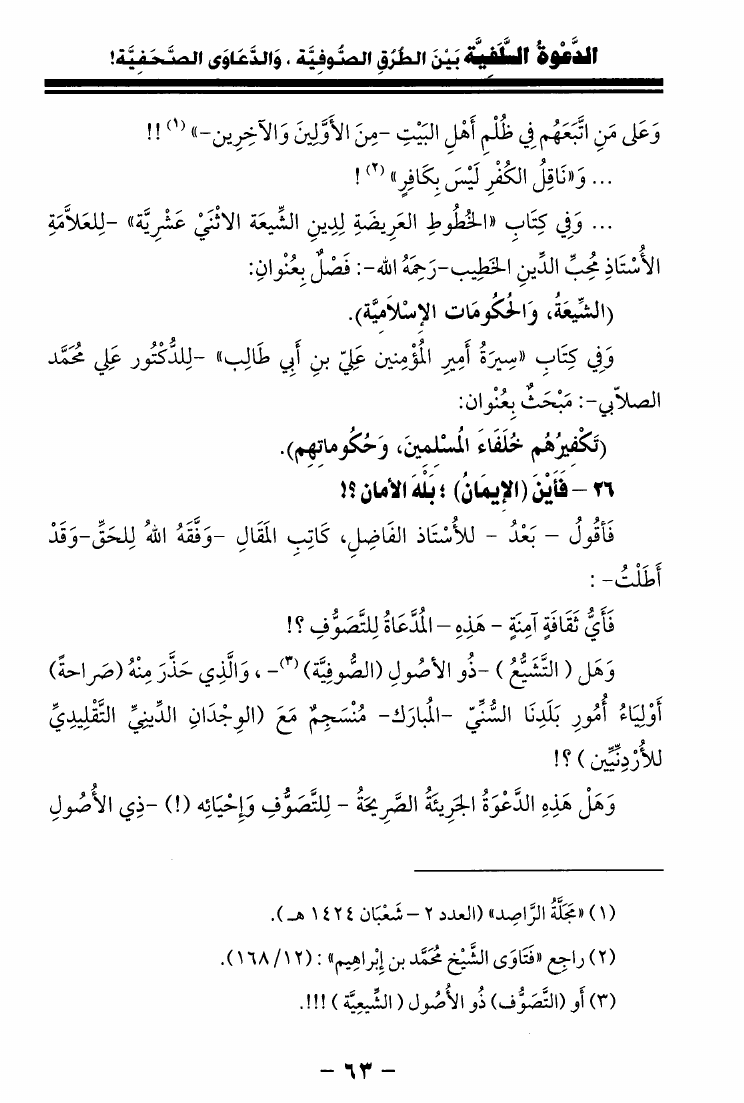 الدَّعْوةُ السَّلَفِيَّة بَيْنَ الطُرُقِ الصُّوفِيَّة ، وَالدَّعَاوَى الصَّحَفِيَّة!
وَعَلى مَنِ اتَّبَعَهُم فِي ظُلْمِ أَهْلِ البَيْتِ -مِنَ الأَوَّلِينَ وَالآخِرِين-» (١) !!
... وَ«نَاقِلُ الكُفْرِ لَيْسَ بِكَافِرٍ» (٢) !
... وَفِي كِتَابِ «الخُطُوطِ العَرِيضَةِ لِدِينِ الشِّيعَة الاثْنَيْ عَشْرِيَّة» -لِلعَلاَّمَةِ
الأُسْتَاذِ مُحِبِّ الدِّينِ الخَطِيب-رَحِمَهُ الله-: فَصْلٌ بِعُنْوانِ:
(الشِّيعَةُ، وَالحُكُومَات الإِسْلاَمِيَّة).
وَفِي كِتَابِ «سِيرَةُ أَمِيرِ المُؤْمِنين عَلِيّ بنِ أَبي طَالِب» -لِلدُّكْتُور عَلِي مُحَمَّد
الصلاّبي-: مَبْحَثٌ بِعُنْوان:
(تَكْفِيرُهُم خُلَفَاءَ المُسْلِمِينَ، وَحُكُوماتِهِم).
٢٦ – فَأَيْنَ (الإِيمَانُ) ؛ بَلْهَ الأَمان ؟!
فَأَقُولُ – بَعْدُ – للأُسْتَاذ الفَاضِلِ، كَاتِبِ المَقَالِ -وَفَّقَهُ اللهُ لِلحَقِّ-وَقَدْ
أَطَلْتُ- :
فَأَيُّ ثَقَافَةٍ آمِنَةٍ - هَذِهِ – المُدَّعَاةُ لِلتَّصَوُّفِ ؟!
وَهَل ( التَّشَيُّعُ ) -ذُو الأصُولِ (الصُّوفِيَّة) (٣)- ، وَالَّذِي حَذَّرَ مِنْهُ (صَراحةً)
أَوْلِيَاءُ أُمُورِ بَلَدِنَا السُّنِّيّ -المُبارَك- مُنْسَجِمٌ مَعَ (الوِجْدَانِ الدِّينِيِّ التَّقْلِيدِيِّ
للأُرْدنِيِّين ) ؟!
وَهَلْ هَذِهِ الدَّعْوَةُ الجَرِيئَةُ الصَّرِيحَةُ - لِلتَّصَوُّفِ وَإِحْيَائِه (!) -ذِي الأُصُولِ
(١) «مَجَلَّةُ الرَّاصِد» (العدد ٢ – شَعْبَان ١٤٢٤ هـ).
(٢) راجِع «فَتَاوَى الشَّيْخ مُحَمَّد بن إِبْراهِيم» : (١٢/ ١٦٨).
(٣) أو (التَّصَوُّف) ذُو الأُصُول ( الشِّيعِيَّة ) !!!.
– ٦٣ –